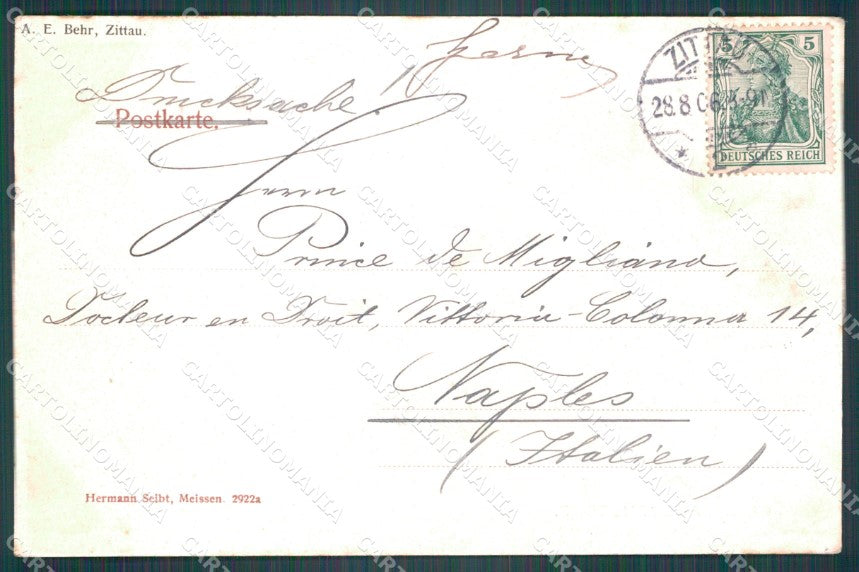 A. E. Behr, Zittau.
Drucksache!
Postkarte.
ZITTAU
28.8.06.
5 5
DEUTSCHES REICH
Herrn
Prince de Migliano,
Docteur en Droit, Vittoria-Colonna 14,
Naples
(Italien)
Hermann Seibt, Meissen. 2922a
CARTOLINOMANIA